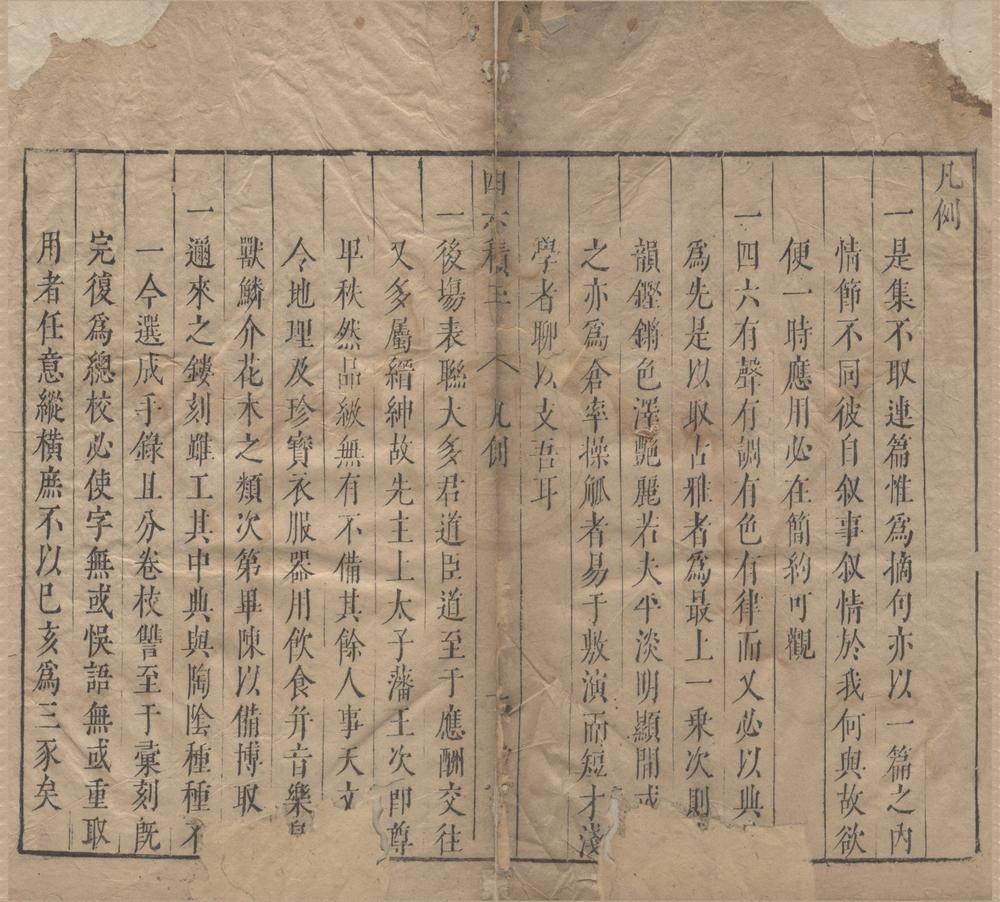 凡例
一是集不取連篇惟爲摘句亦以一篇之內
情節不同彼自叙事叙情於我何與故欲
便一時應用必在簡約可觀
一四六有聲有調有色有律而又必以典
爲先是以取古雅者爲最上一乘次則
韻鏗鏘色澤艷麗若夫平淡明顯間或
之亦爲倉率操觚者易于敷演而短才淺
學者聊以支吾耳
四六積玉 凡例
一後塲表聯大多君道臣道至于應酬交往
又多屬縉紳故先主上太子藩王次即尊
卑秩然品級無有不備其餘人事天文
今地理及珍寶衣服器用飲食并音樂
獸鱗介花木之類次第畢陳以備博取
一邇來之鏤刻雖工其中典與陶陰種種不
一今選成手錄且分卷校讐至于彙刻旣
完復爲總校必使字無或悞語無或重取
用者任意縱橫庶不以已亥爲三豕矣